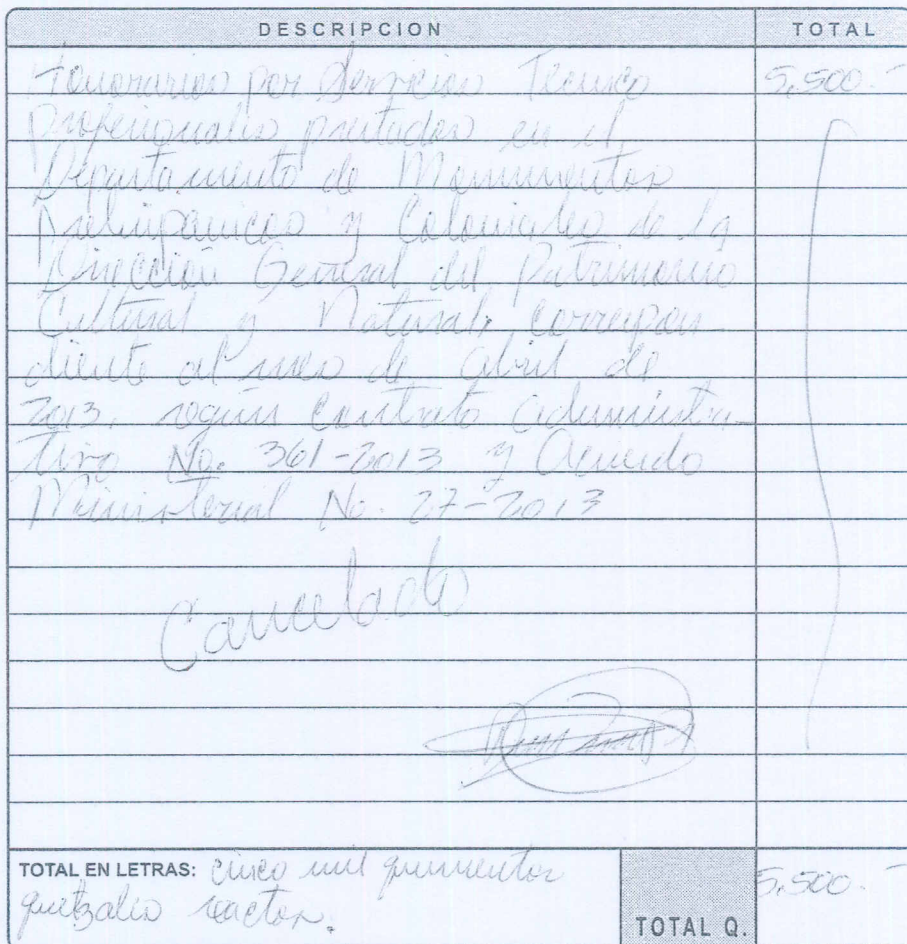 DESCRIPCION TOTAL
Honorarios por Servicios Tecnico 5,500.-
Profesionales prestados en el
Departamento de Monumentos
Prehispanicos y Coloniales de la
Dirección General del Patrimonio
Cultural y Natural, correspon
diente al mes de abril de
2013, según contrato administra-
tivo No. 361-2013 y Acuerdo
Ministerial No. 27-2013
Cancelado
TOTAL EN LETRAS: cinco mil quinientos
quetzales exactos.
TOTAL Q. 5,500.-